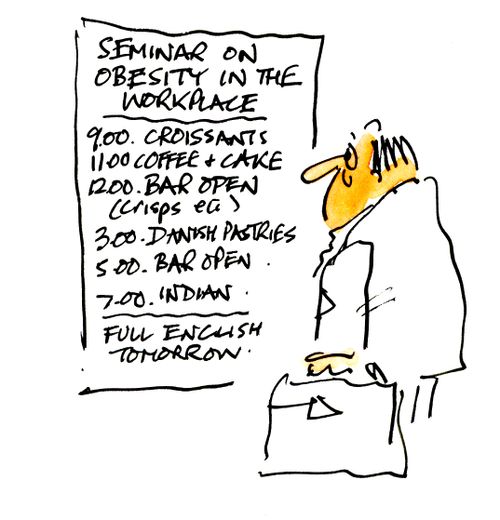 SEMINAR ON
OBESITY IN THE
WORKPLACE
9.00. CROISSANTS
11.00 COFFEE + CAKE
12.00. BAR OPEN
(crisps etc)
3.00. DANISH PASTRIES
5.00. BAR OPEN.
7.00. INDIAN.
FULL ENGLISH
TOMORROW.